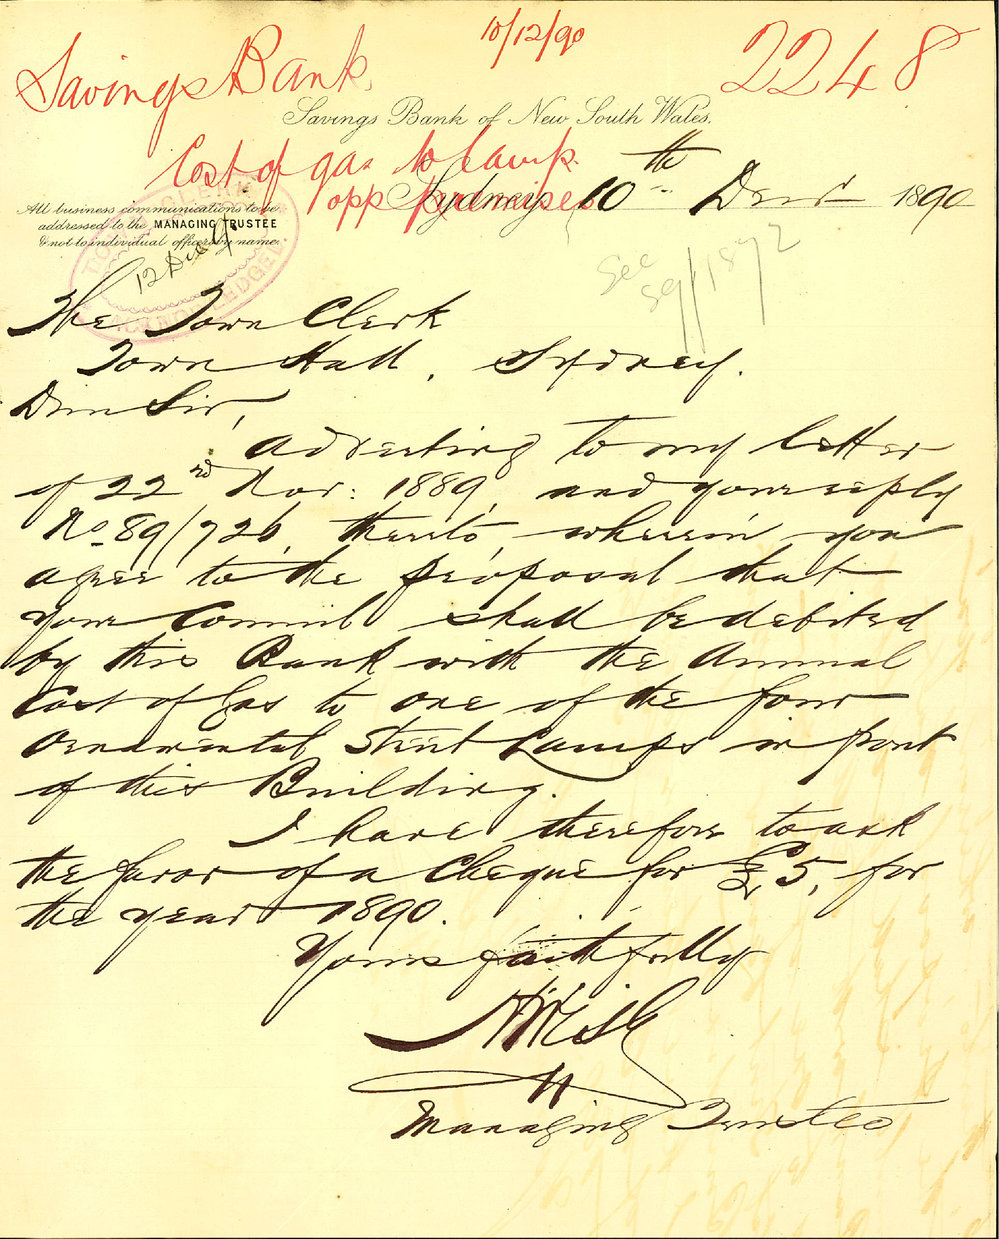 10/12/90
Savings Bank
2248
Savings Bank of New South Wales.
Cost of gas to lamp
opp premises
Sydney 10th Decr 1890
All business communications to be
addressed to the MANAGING TRUSTEE
& not to individual officers by name.
TOWN CLERK
ACKNOWLEDGED
12 Dec 90
See
89/1872
The Town Clerk
Town Hall, Sydney.
Dear Sir,
Adverting to my letter
of 22nd Nov: 1889, and your reply
No 89/726, thereto, wherein you
agree to the proposal that
your Council shall be debited
by this Bank with the Annual
Cost of Gas to one of the four
ornamental Street Lamps in front
of this Building.
I have therefore to ask
the favor of a Cheque for £5, for
the year 1890.
Yours faithfully
Managing Trustee